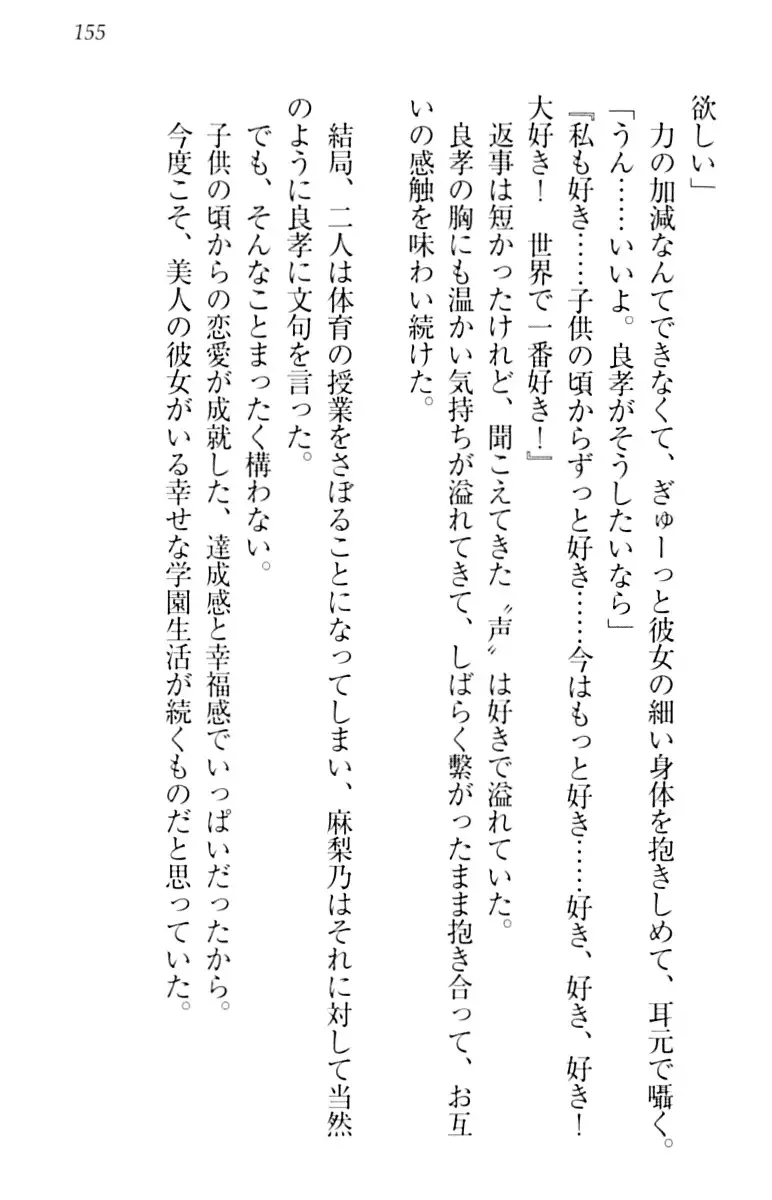 155
欲しい」
力の加減なんてできなくて、ぎゅーっと彼女の細い身体を抱きしめて、耳元で囁く。
「うん……いいよ。良孝がそうしたいなら」
『私も好き……子供の頃からずっと好き……今はもっと好き……好き、好き、好き！
大好き！　世界で一番好き！』
返事は短かったけれど、聞こえてきた〝声〟は好きで溢れていた。
良孝の胸にも温かい気持ちが溢れてきて、しばらく繋がったまま抱き合って、お互
いの感触を味わい続けた。
結局、二人は体育の授業をさぼることになってしまい、麻梨乃はそれに対して当然
のように良孝に文句を言った。
でも、そんなことまったく構わない。
子供の頃からの恋愛が成就した、達成感と幸福感でいっぱいだったから。
今度こそ、美人の彼女がいる幸せな学園生活が続くものだと思っていた。